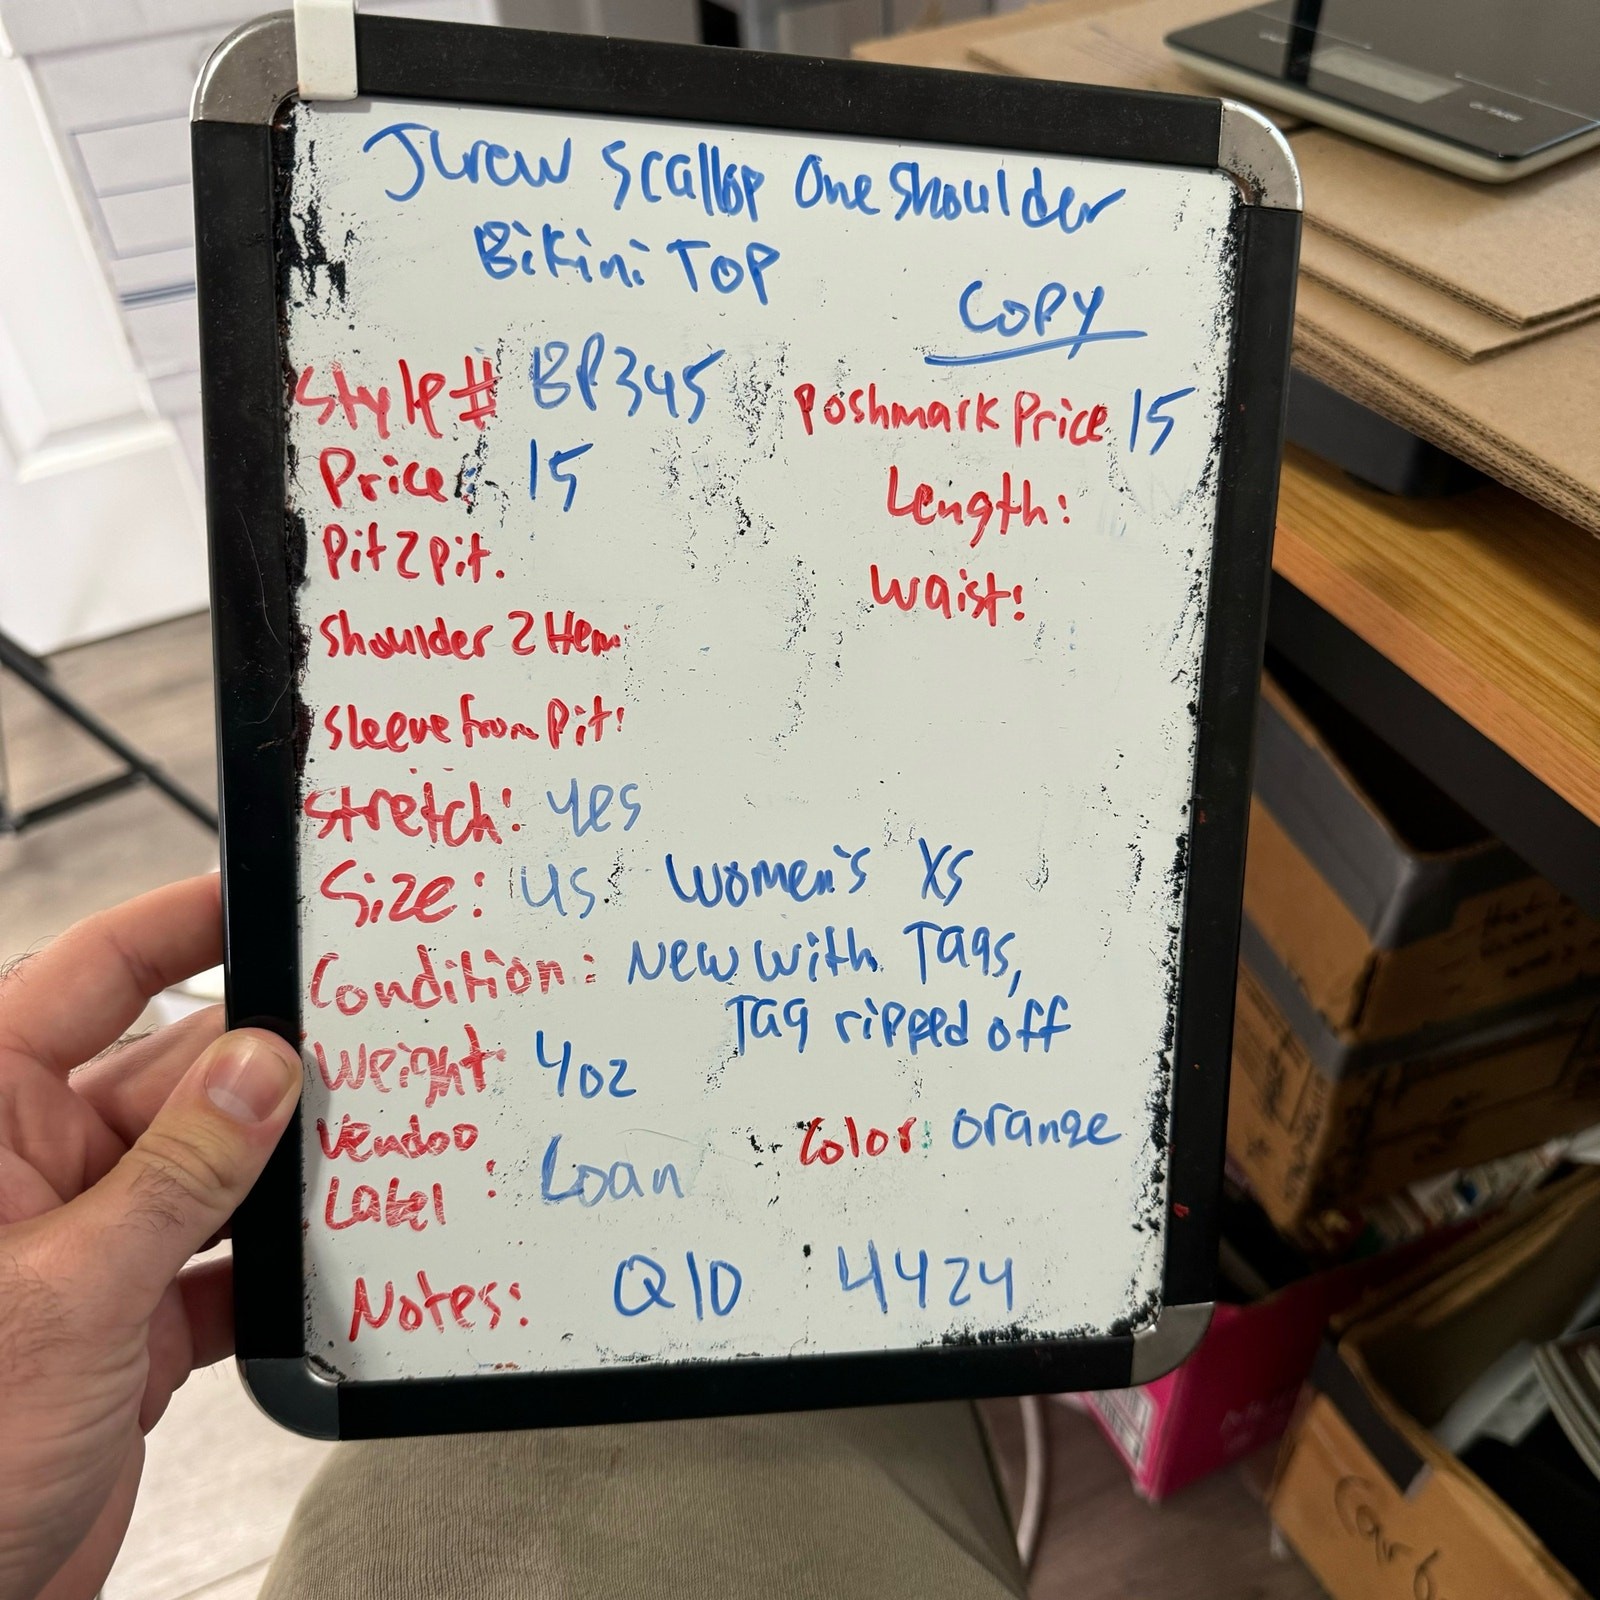 JCrew Scallop One Shoulder
Bikini Top
COPY
Style # BP345
Poshmark Price 15
Price: 15
Length:
Pit 2 Pit.
Waist:
Shoulder 2 Hem:
Sleeve from Pit:
Stretch: yes
Size: US Women's XS
Condition: New with Tags,
Tag ripped off
Weight: 4oz
Vendoo
Label: Loan
Color: orange
Notes: Q10 4424